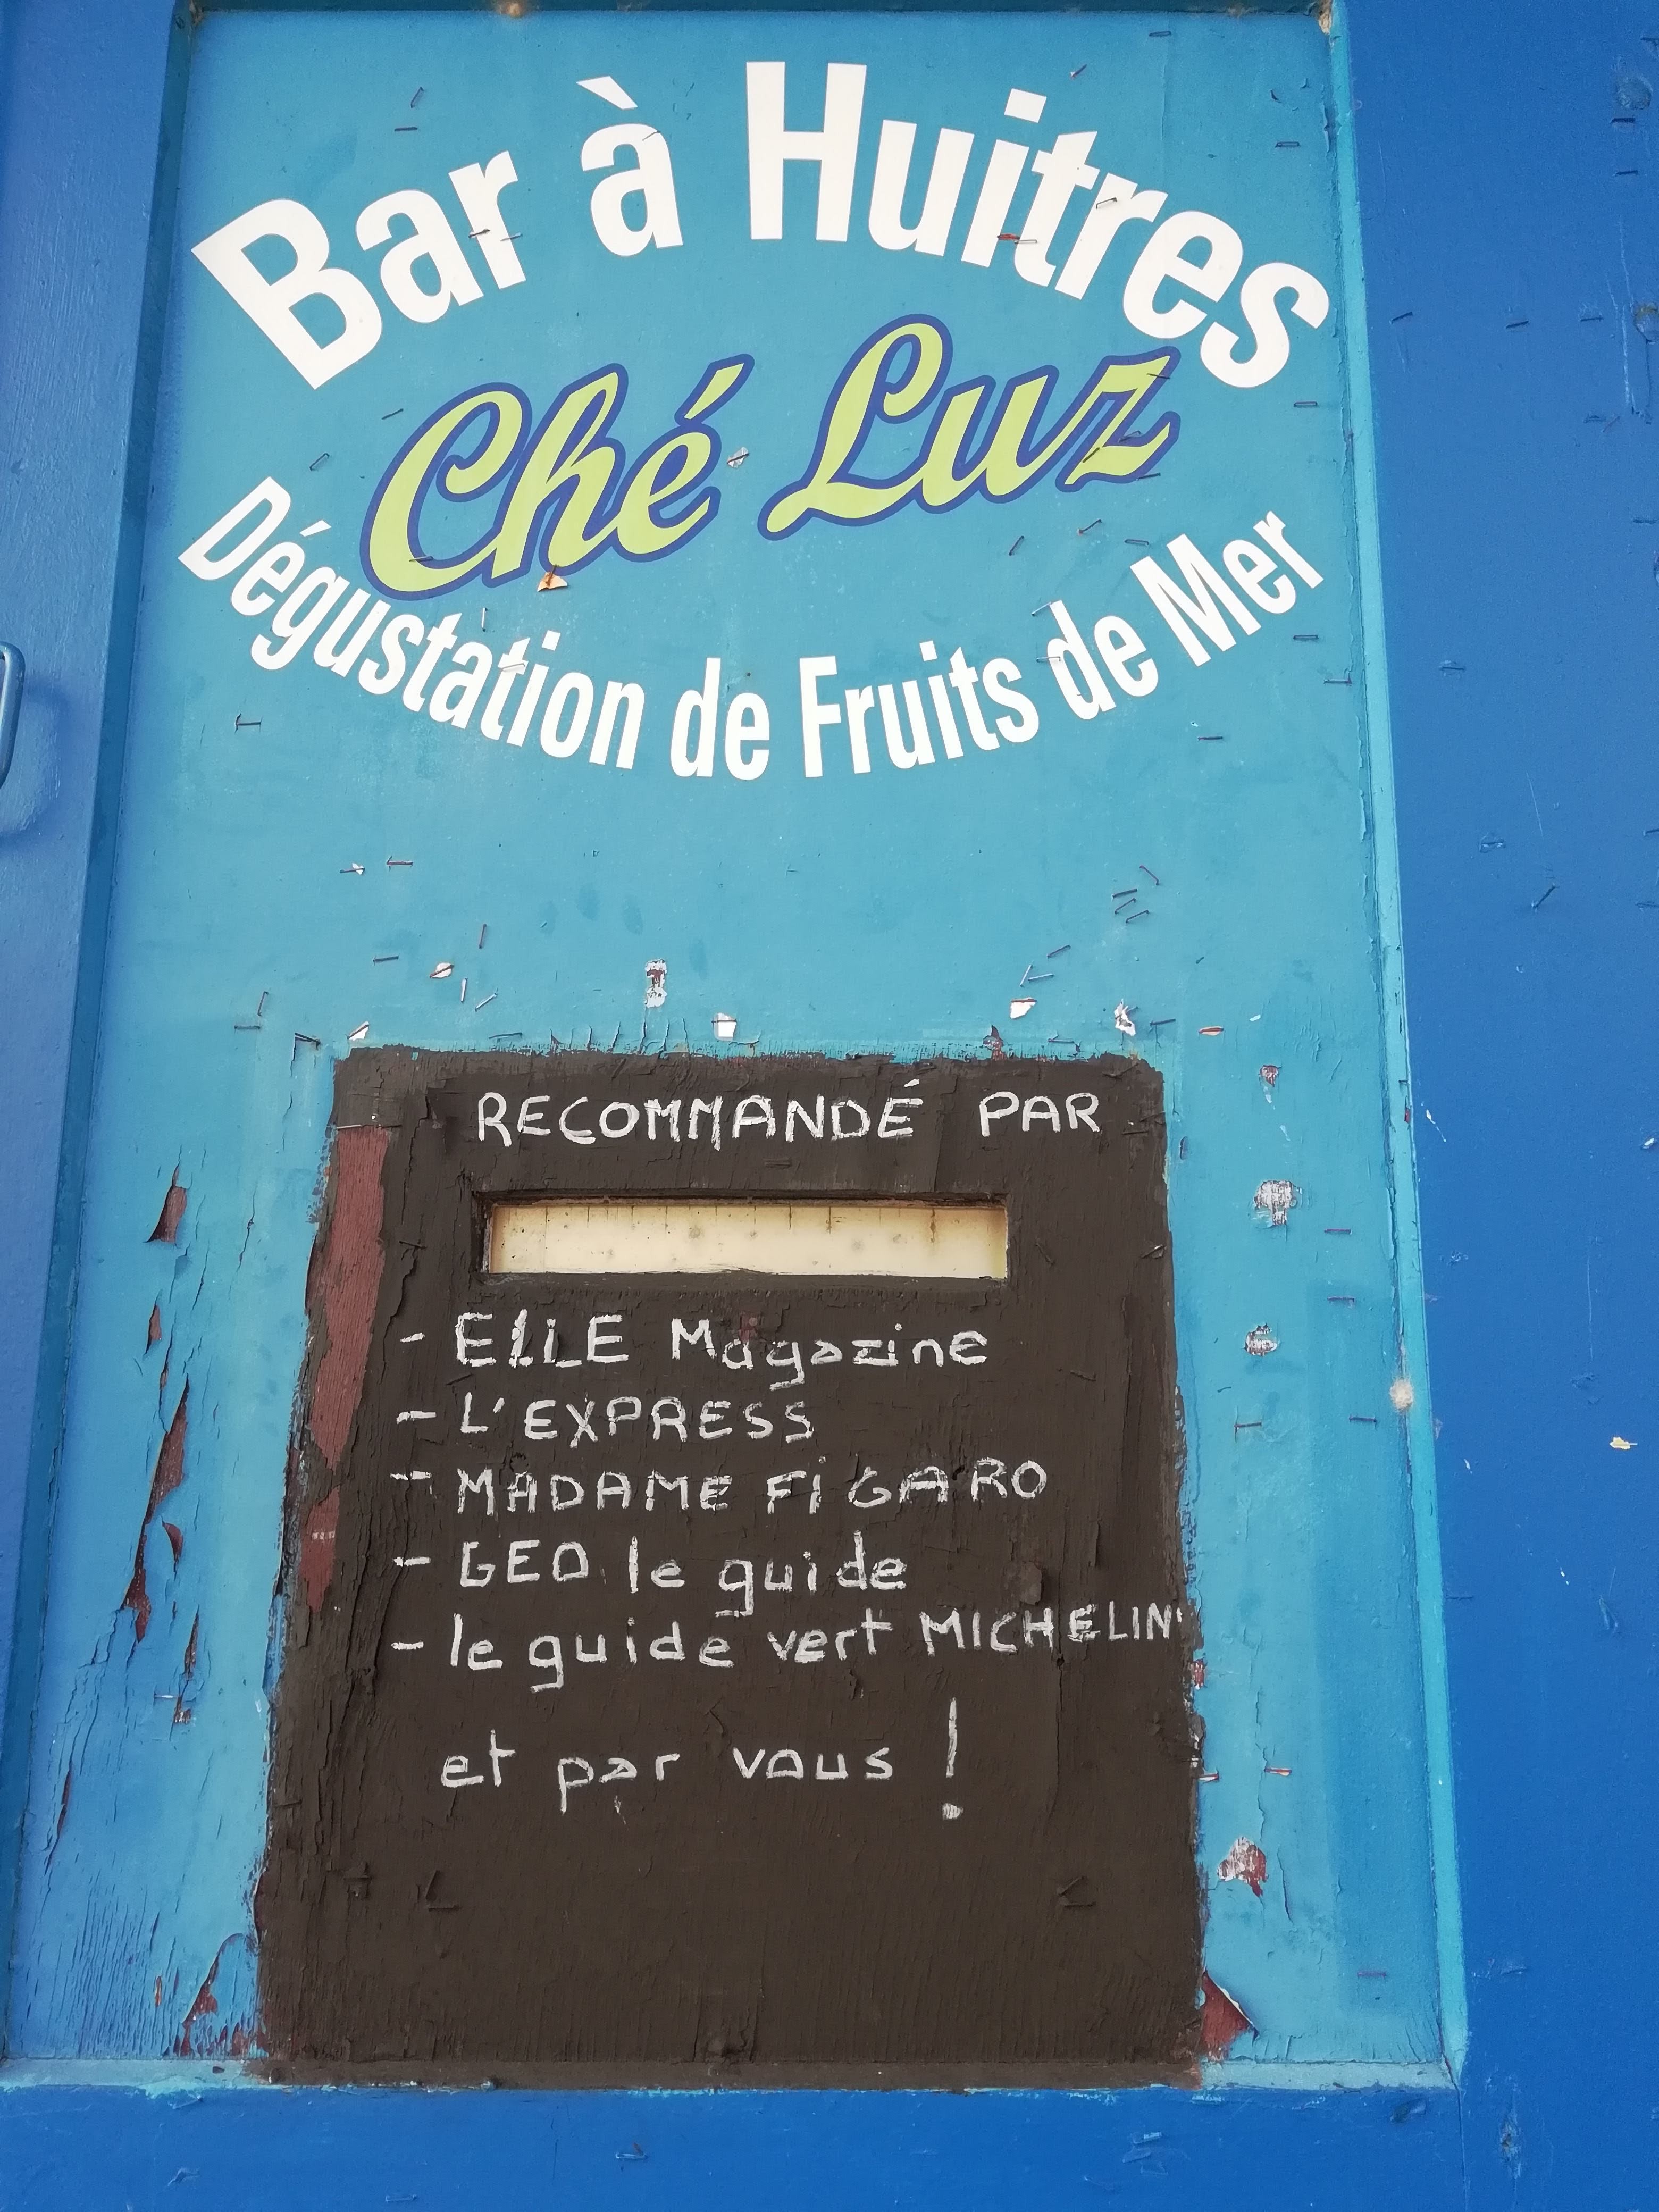 Bar à Huitres
Ché Luz
Dégustation de Fruits de Mer
RECOMMANDÉ PAR
- ELLE Magazine
- L'EXPRESS
- MADAME FIGARO
- GEO le guide
- le guide vert MICHELIN
et par vous !